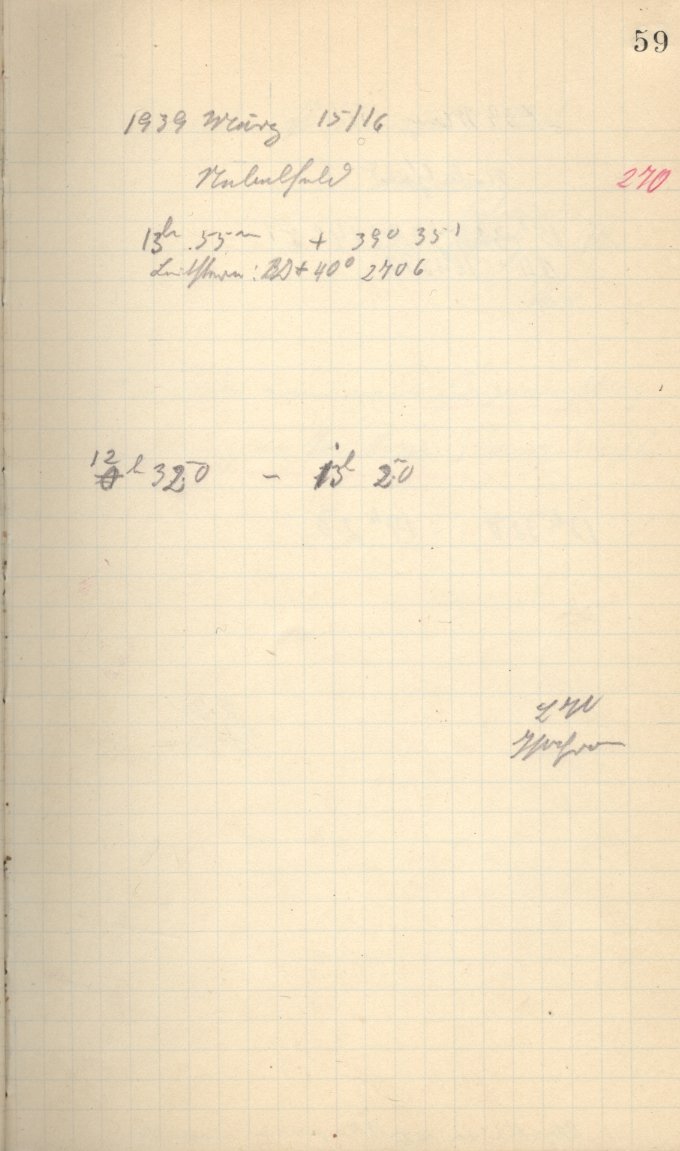 59
1939 März 15/16
Nebelfeld
270
13h 55m + 39° 35'
Leitstern: BD + 40° 2706
12h 32.0 - 13h 2.0